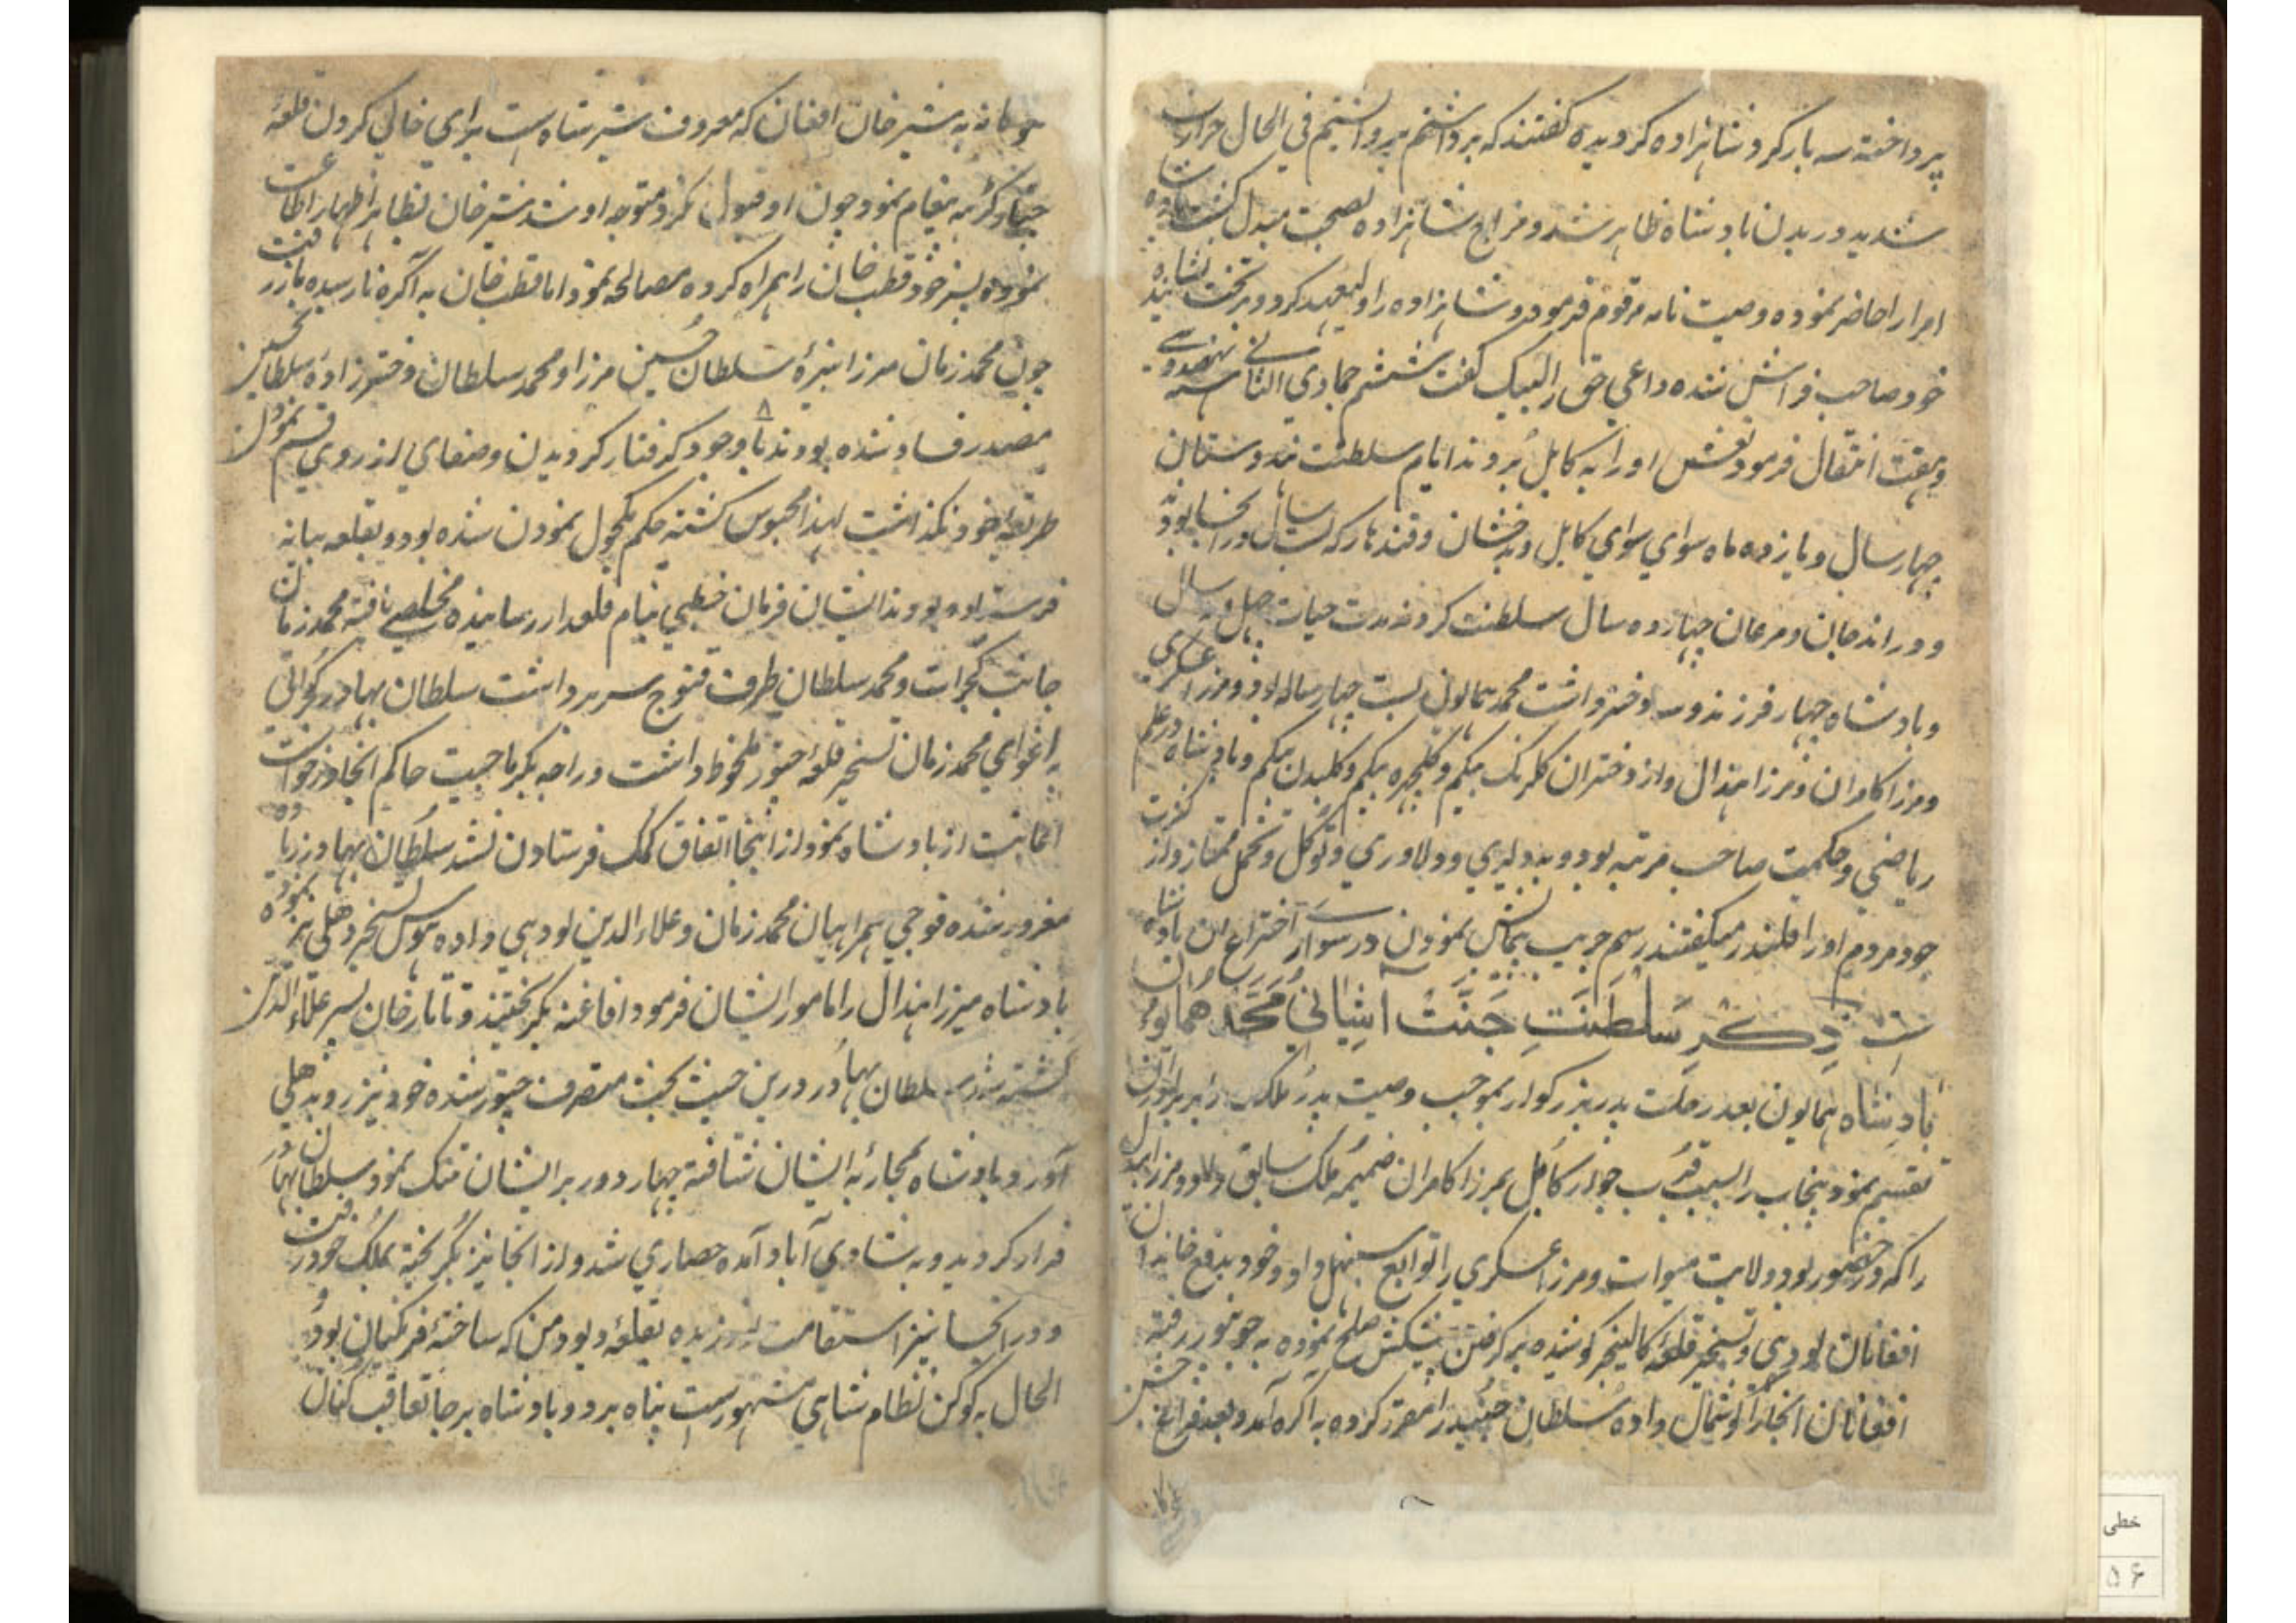 پرداخته سه بار گرد شاهزاده گردیده گفتند که برداشتم برداشتم فی الحال حرارت
شدید در بدن بادشاه ظاهر شد و مزاج شاهزاده بصحت مبدل گشت بادشاه
امرا را حاضر نموده وصیت نامه مرقوم فرمود و شاهزاده را ولیعهد کرد و بر تخت نشانیده
خود صاحب فراش شده داعی حق را لبیک گفت ششم جمادی الثانی سنه نهصد و سی
و هفت انتقال فرمود نعش او را به کابل بردند ایام سلطنت هندوستان
چهار سال و یازده ماه سوای سوای کابل و بدخشان و قندهار که بست سال در انجا بود
و در اندجان و مرغان چهارده سال سلطنت کردند مدت حیات چهل و نه سال
و بادشاه چهار فرزند و سه دختر داشت محمد همایون بست چهار ساله بود و مرزا عسکری
و مرزا کامران و مرزا هندال و از دختران گلرنگ بیگم و گلچهره بیگم و گلبدن بیگم و بادشاه در علم
ریاضی و حکمت صاحب مرتبه بود و بدلیری و دلاوری و توکل و تحمل ممتاز و از کثرت
جود مردم او را قلندر میگفتند رسم جریب نمودن در سواری اختراع آن بادشاه
ذکر سلطنت جنت آشیانی محمد همایون
بادشاه همایون بعد رحلت پدر بزرگوار بموجب وصیت پدر ملک را بر برادران
تقسیم نمود پنجاب را بسبب قرب جوار کابل بمرزا کامران ضمیمه ملک سابق داد و مرزا هندال
را که در حضور بود ولایت میوات و مرزا عسکری را توابع سنبهل داد و خود بدفع
افغانان لودی و تسخیر قلعه کالینجر کوشیده بر گرفتن پیشکش صلح نموده به جونپور رفته
افغانان انجا را گوشمال داده سلطان جنید را مقرر کرده به آگره آمد و بعد فراغ جشن
به شیر خان افغان که معروف شیر شاه است برای خالی کردن قلعه
پیغام نمود چون او قبول نکرد متوجه او شد شیر خان بظاهر اظهار اطاعت
نموده پسر خود قطب خان را همراه کرده مصالحه نمود اما قطب خان به آگره نارسیده باز رفت
چون محمد زمان مرزا نبیره سلطان حسین مرزا و محمد سلطان دخترزاده سلطان حسین
مصدر فساد شده بودند با وجود گرفتار گردیدن و صفای از روی قسم نمودن
طریقه خود نگذاشت لهذا محبوس گشته حکم مکحول نمودن شده بود و بقلعه بیانه
فرستاده بودند ایشان فرمان بنام قلعدار رسانیده مخلصی یافته محمد زمان
جانب گجرات و محمد سلطان طرف قنوج سر برداشت سلطان بهادر گجراتی
به اغوای محمد زمان تسخیر قلعه چتور ملحوظ داشت و راجه بکرماجیت حاکم انجا درخواست
اعانت از بادشاه نمود از اینجا اتفاق کمک فرستادن نشد سلطان بهادر زیاده
مغرور شده فوجی همراهیان محمد زمان و علاء الدین لودی داده هوس تسخیر دهلی نیز نموده
بادشاه میرزا هندال را مامور ایشان فرمود افاغنه بگریختند و تاتار خان پسر علاء الدین
کشته شد سلطان بهادر درین متصرف چتور شده خود نیز رو بدهلی
آورد بادشاه بمحاربه ایشان شتافته چهار دور بر ایشان تنگ نمود سلطان بهادر
فرار گردیده به شادی آباد آمده حصاری شد و از انجا نیز بگریخته بملک خود رفت
و در انجا نیز استقامت نورزیده بقلعه دیو دمن که ساخته فرنگیان بود و
الحال به کوکن نظام شاهی مشهور است پناه برد و بادشاه بر جا تعاقب کنان
خطی
۵۶